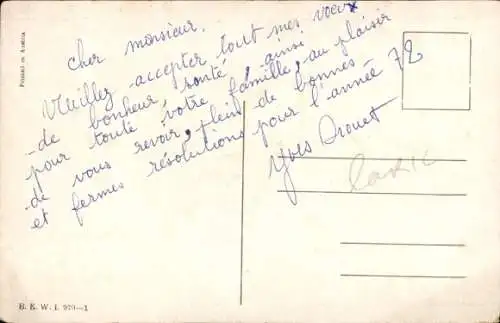 Cher monsieur,
Veuillez accepter tout mes voeux
de bonheur, santé, ainsi
pour toute votre famille, au plaisir
de vous revoir, plein de bonnes
et fermes résolutions pour l'année 72
Yves Drouet
Printed in Austria
B. K. W. I. 979—1